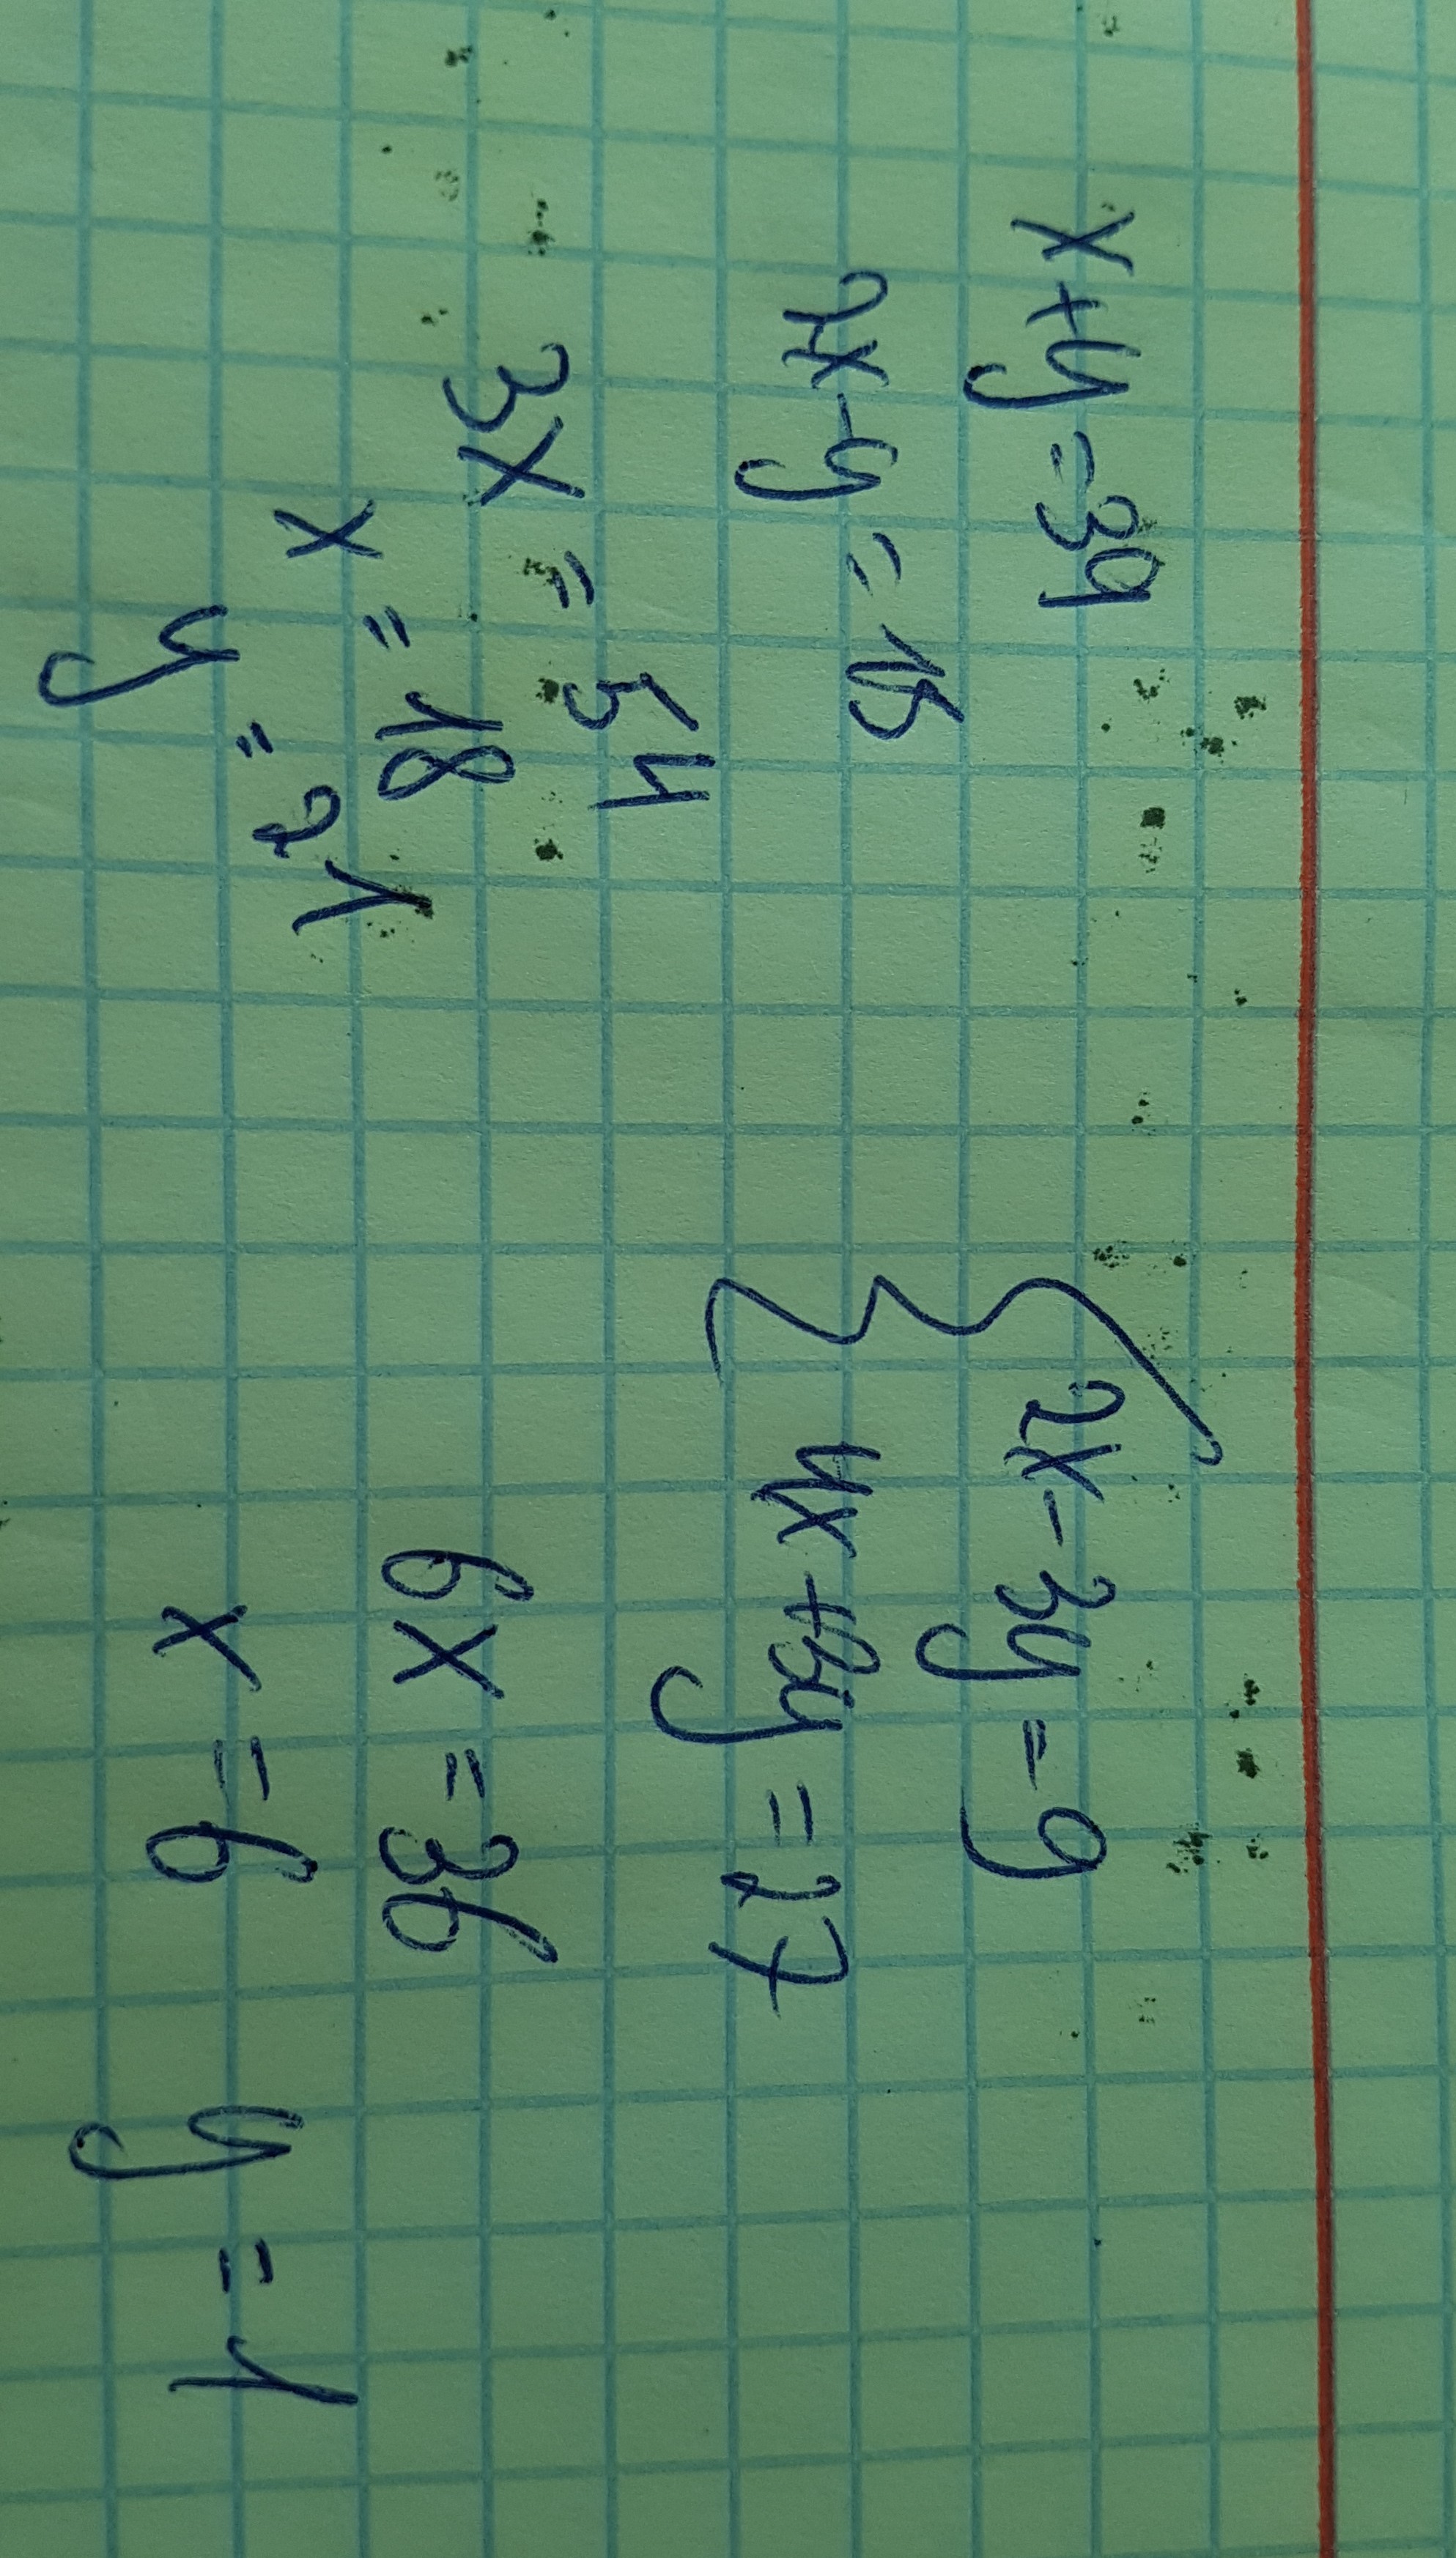 x+y=39
2x-y=15
3x=54
x=18
y=21
2x-3y=9
4x+3y=27
6x=36
x=6 y=1